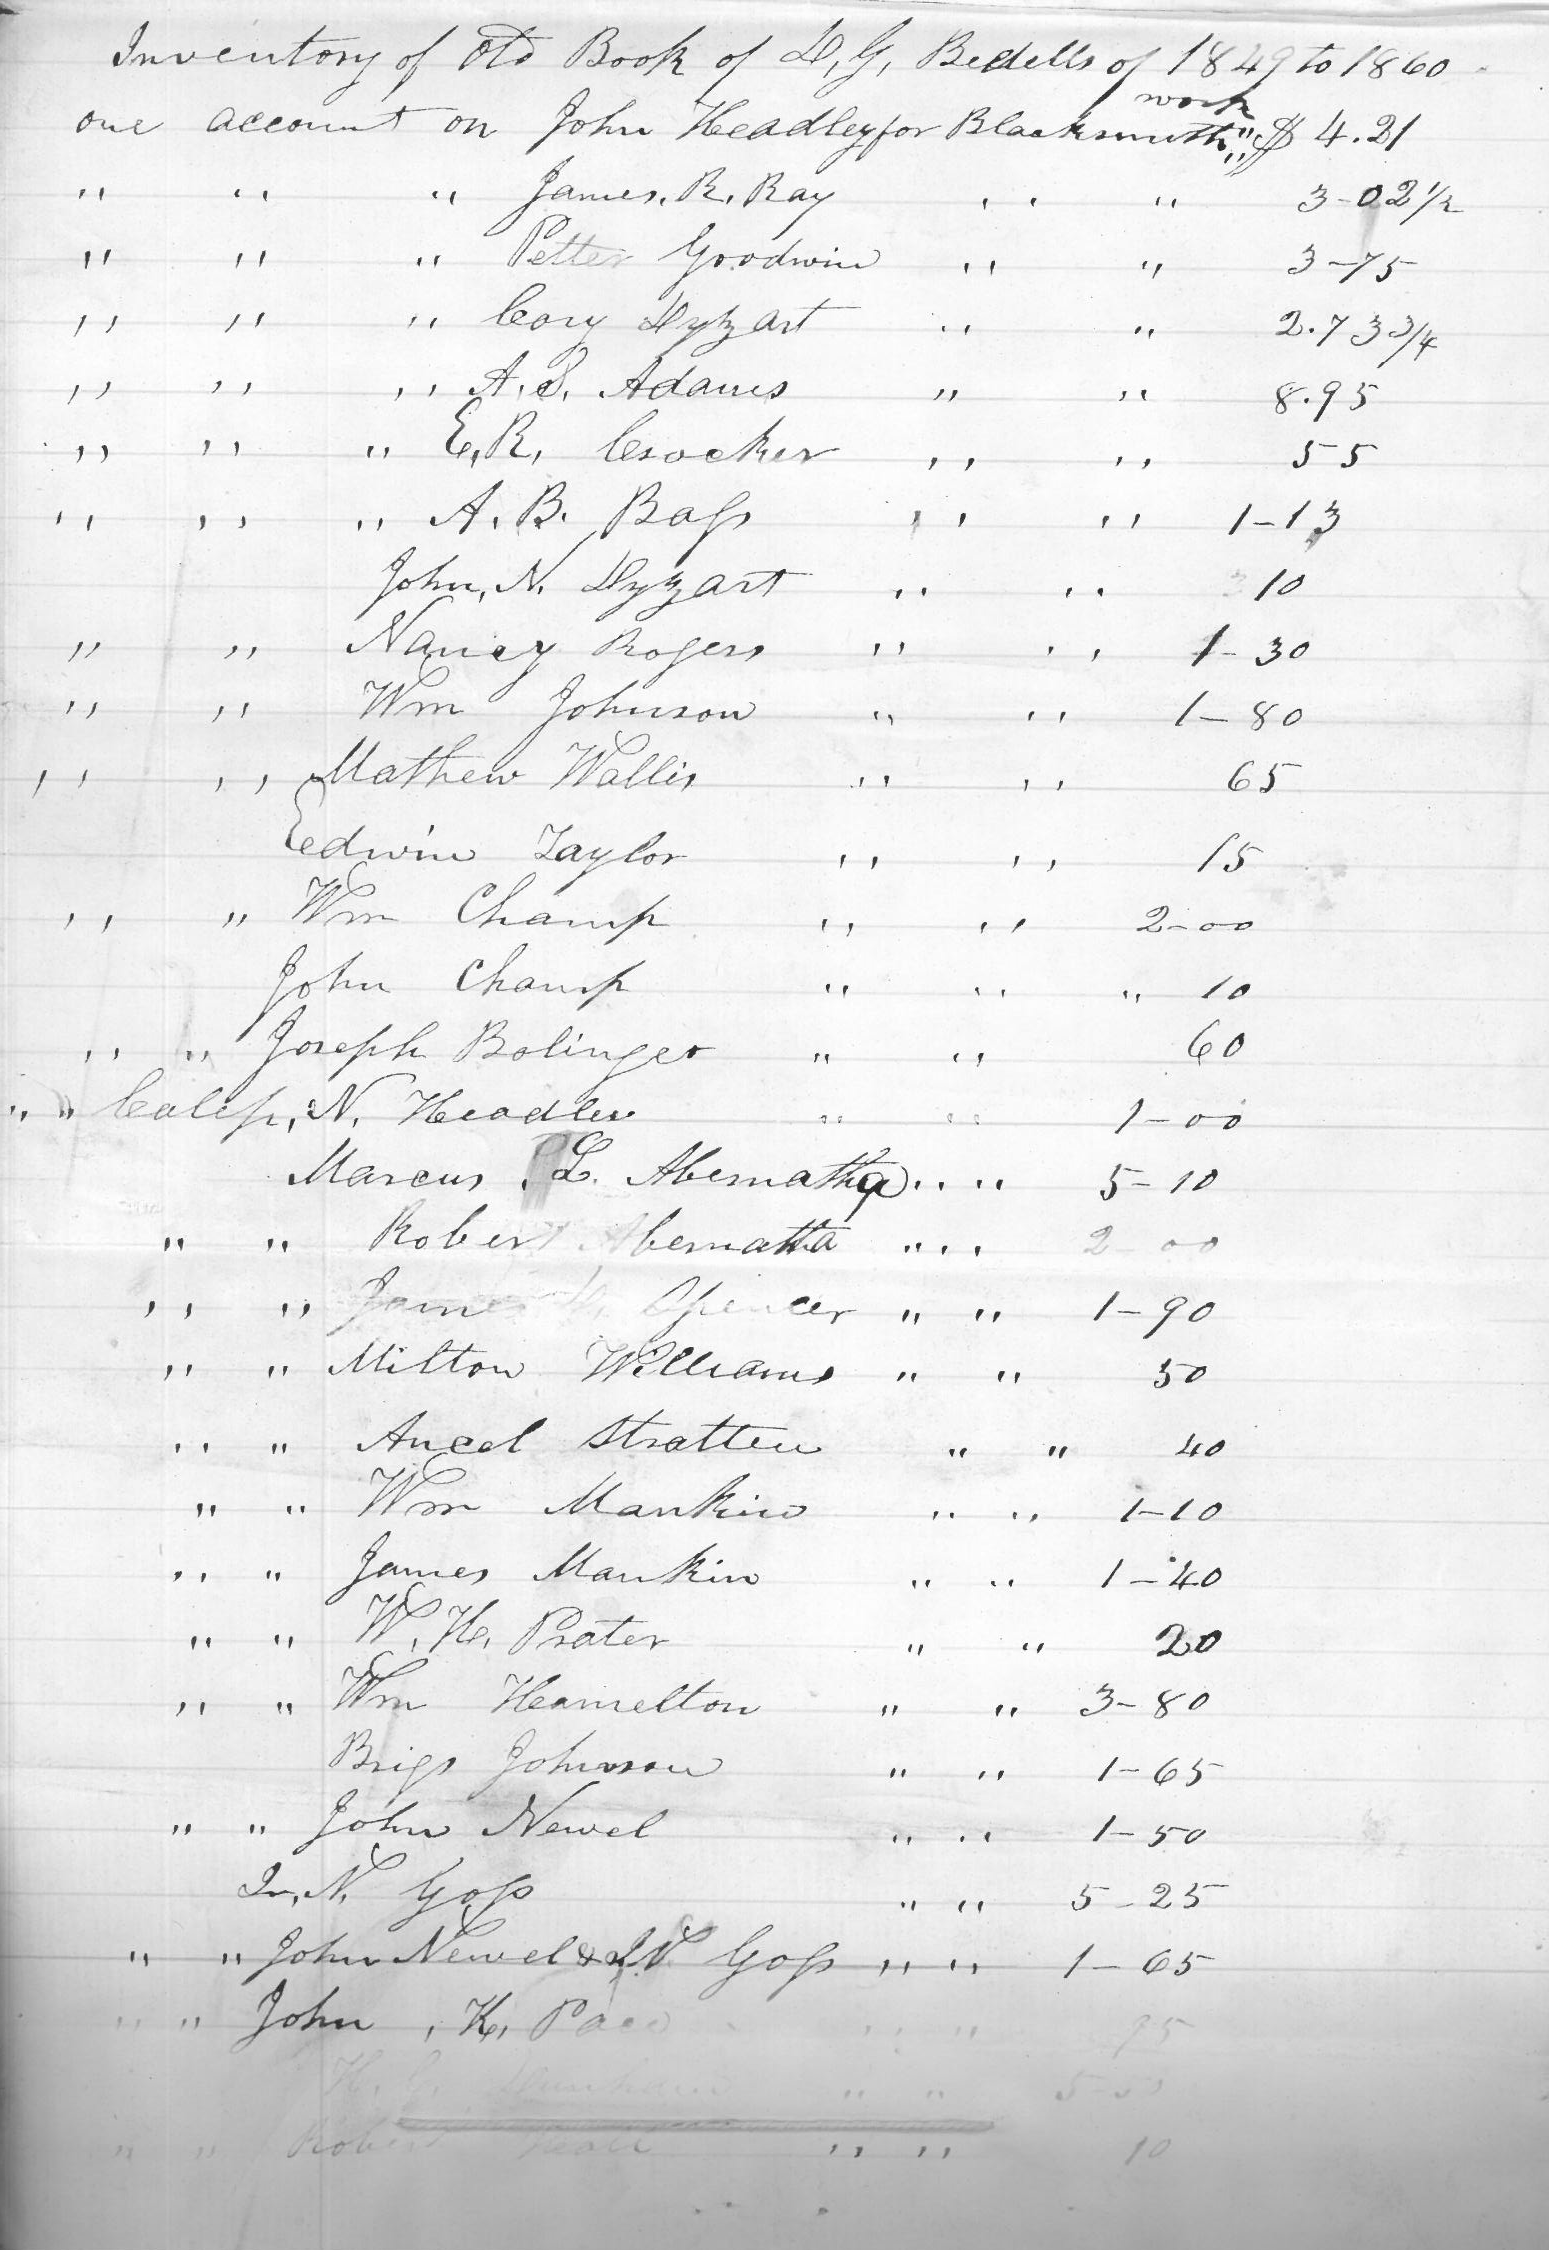 Inventory of Old Book of D, G, Bedells of 1849 to 1860
one account on John Headley for Blacksmith work " $ 4.21
" " " James. R. Ray " " 3-02 1/2
" " " Petter Goodwin " " 3-75
" " " Cory Dyzart " " 2.73 3/4
" " " A. S. Adams " " 8.95
" " " E, R, Crocker " " 55
" " " A. B. Bass " " 1-13
John, N. Dyzart " " 10
" " Nancy Rogers " " 1-30
" " Wm Johnson " " 1-80
" " Mathew Wallis " " 65
Eedwin Taylor " " 15
" " Wm Champ " " 2-00
John Champ " " " 10
" " Joseph Bolinger " " 60
" " Calep, N. Headlee " " 1-00
Marcus L. Abernatha " " 5-10
" " Robert Abernatha " " 2-00
" " James Spencer " " 1-90
" " Milton Williams " " 50
" " Ancel Stratten " " 40
" " Wm Mankin " " 1-10
" " James Mankin " " 1-40
" " W. H. Prater " " 20
" " Wm Hamelton " " 3-80
Brigs Johnson " " 1-65
" " John Newel " " 1-50
J, N. Goss " " 5-25
" " John Newel & J N Goss " " 1-65
" " John , K, Pace " " 95
H. G. " "
" " Robert " " 10